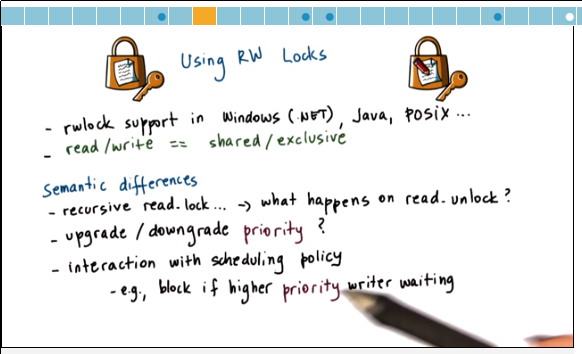 Using RW Locks
- rwlock support in Windows (.NET), Java, POSIX ...
- read/write == shared/exclusive
Semantic differences
- recursive read_lock... -> what happens on read_unlock?
- upgrade/downgrade priority?
- interaction with scheduling policy
- e.g., block if higher priority writer waiting